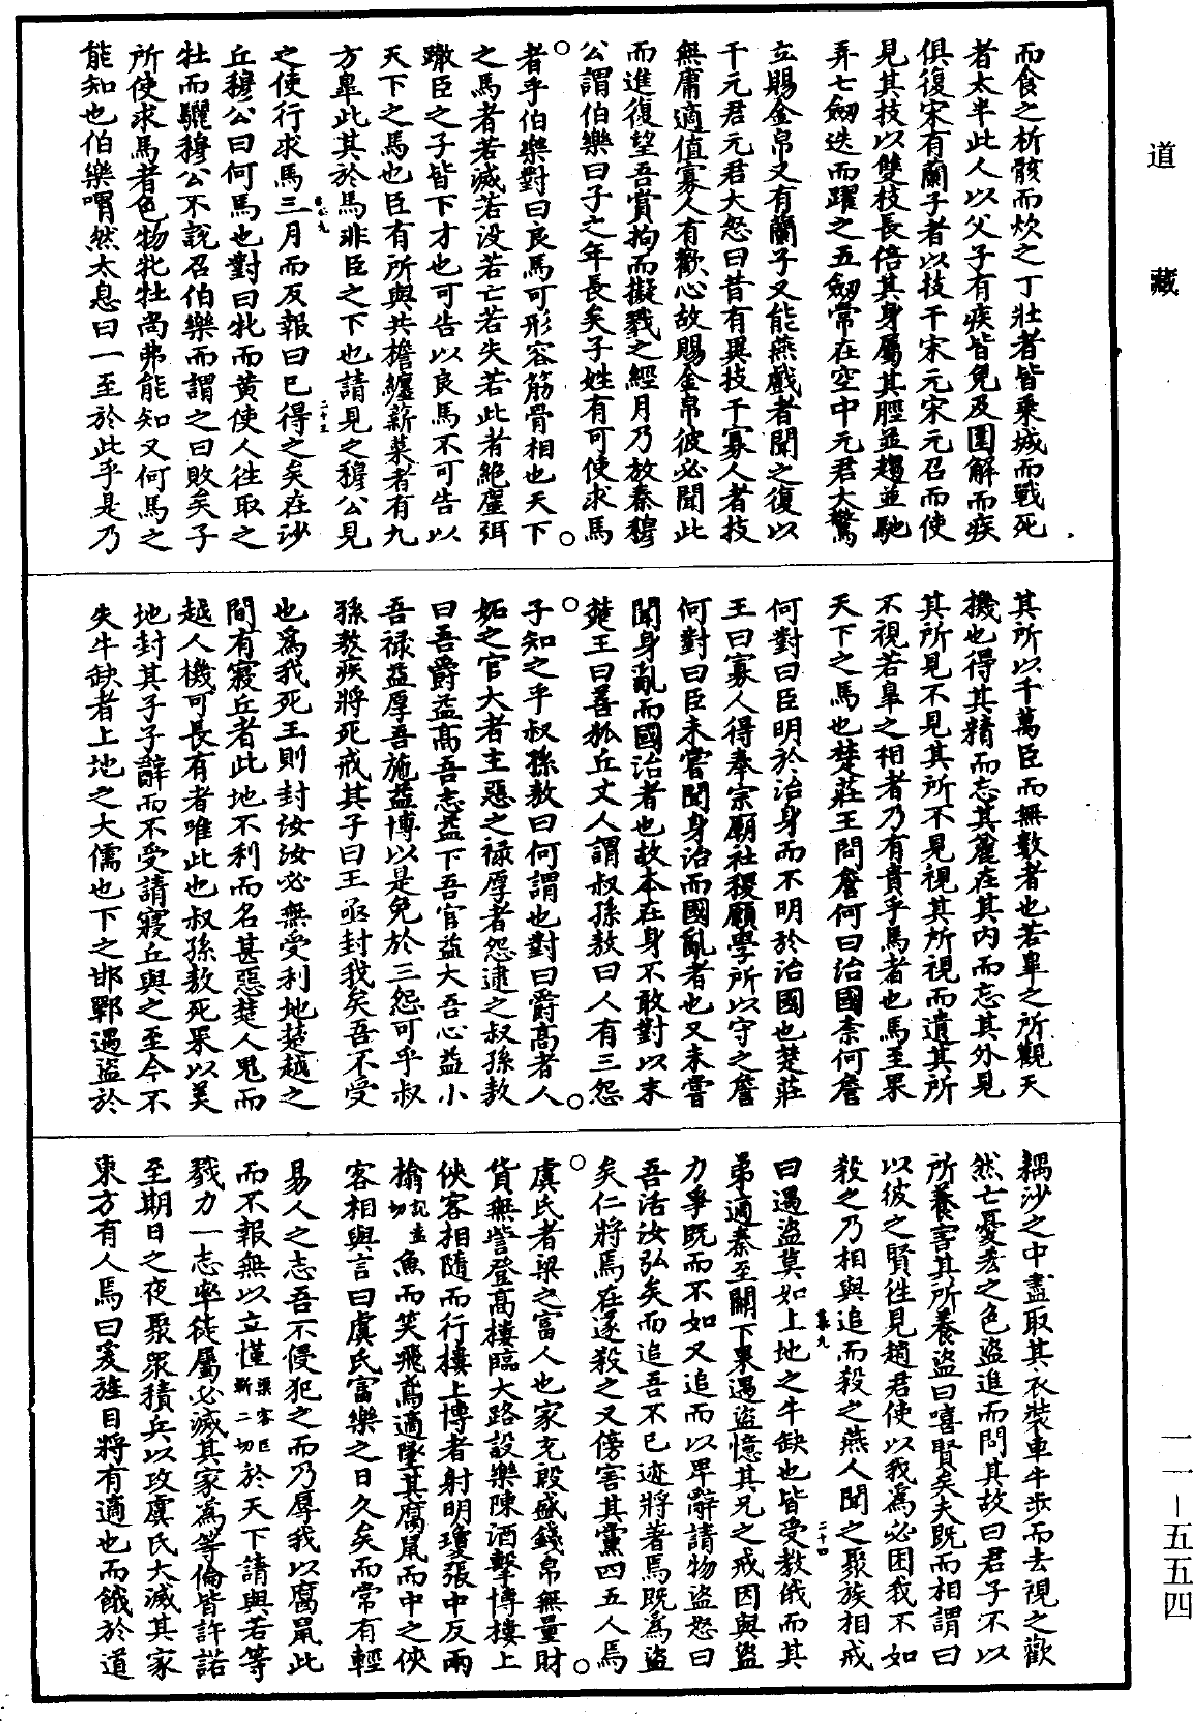 道藏
而食之析骸而炊之丁壯者皆乘城而戰死
者太半此人以父子有疾皆免及圍解而疾
俱復宋有蘭子者以技干宋元宋元召而使
見其技以雙枝長倍其身屬其脛並趨並馳
弄七劒迭而躍之五劒常在空中元君大驚
立賜金帛又有蘭子又能燕戲者聞之復以
干元君元君大怒曰昔有異技干寡人者技
無庸適值寡人有歡心故賜金帛彼必聞此
而進復望吾賞拘而擬戮之經月乃放秦穆
公謂伯樂曰子之年長矣子姓有可使求馬
者乎伯樂對曰良馬可形容筋骨相也天下
之馬者若滅若没若亡若失若此者絶塵弭
轍臣之子皆下才也可告以良馬不可告以
天下之馬也臣有所與共擔纆薪菜者有九
方臯此其於馬非臣之下也請見之穆公見
之使行求馬三月而反報曰已得之矣在沙
丘穆公曰何馬也對曰牝而黄使人往取之
牡而驪穆公不說召伯樂而謂之曰敗矣子
所使求馬者色物牝牡尚弗能知又何馬之
能知也伯樂喟然太息曰一至於此乎是乃
其所以千萬臣而無數者也若臯之所觀天
機也得其精而忘其麄在其内而忘其外見
其所見不見其所不見視其所視而遺其所
不視若臯之相者乃有貴乎馬者也馬至果
天下之馬也楚莊王問詹何曰治國柰何詹
何對曰臣明於治身而不明於治國也楚莊
王曰寡人得奉宗廟社稷願學所以守之詹
何對曰臣未嘗聞身治而國亂者也又未嘗
聞身亂而國治者也故本在身不敢對以末
楚王曰善狐丘丈人謂叔孫敖曰人有三怨
子知之乎叔孫敖曰何謂也對曰爵高者人
妬之官大者主惡之禄厚者怨逮之叔孫敖
曰吾爵益高吾志益下吾官益大吾心益小
吾禄益厚吾施益博以是免於三怨可乎叔
孫敖疾將死戒其子曰王亟封我矣吾不受
也爲我死王則封汝汝必無受利地楚越之
間有寢丘者此地不利而名甚惡楚人鬼而
越人機可長有者唯此也叔孫敖死果以美
地封其子子辭而不受請寢丘與之至今不
失牛缺者上地之大儒也下之邯鄲遇盜於
耦沙之中盡取其衣裝車牛步而去視之歡
然亡憂吝之色盜進而問其故曰君子不以
所養害其所養盜曰嘻賢矣夫既而相謂曰
以彼之賢往見趙君使以我爲必困我不如
殺之乃相與追而殺之燕人聞之聚族相戒
曰遇盜莫如上地之牛缺也皆受教俄而其
弟適秦至關下果遇盜憶其兄之戒因與盜
力爭既而不如又追而以卑辭請物盜怒曰
吾活汝弘矣而追吾不已迹將著焉既爲盜
矣仁將焉在遂殺之又傍害其黨四五人焉
虞氏者梁之富人也家充殷盛錢帛無量財
貨無訾登高樓臨大路設樂陳酒擊博樓上
俠客相隨而行樓上博者射明瓊張中反兩
㩉魚而笑飛鳶適墜其腐鼠而中之俠
客相與言曰虞氏富樂之日久矣而常有輕
易人之志吾不侵犯之而乃辱我以腐鼠此
而不報無以立慬渠客巨斬二切於天下請與若等
戮力一志率徒屬必滅其家爲等倫皆許諾
至期日之夜聚衆積兵以攻虞氏大滅其家
東方有人焉曰爰旌目將有適也而餓於道
一一－五五四